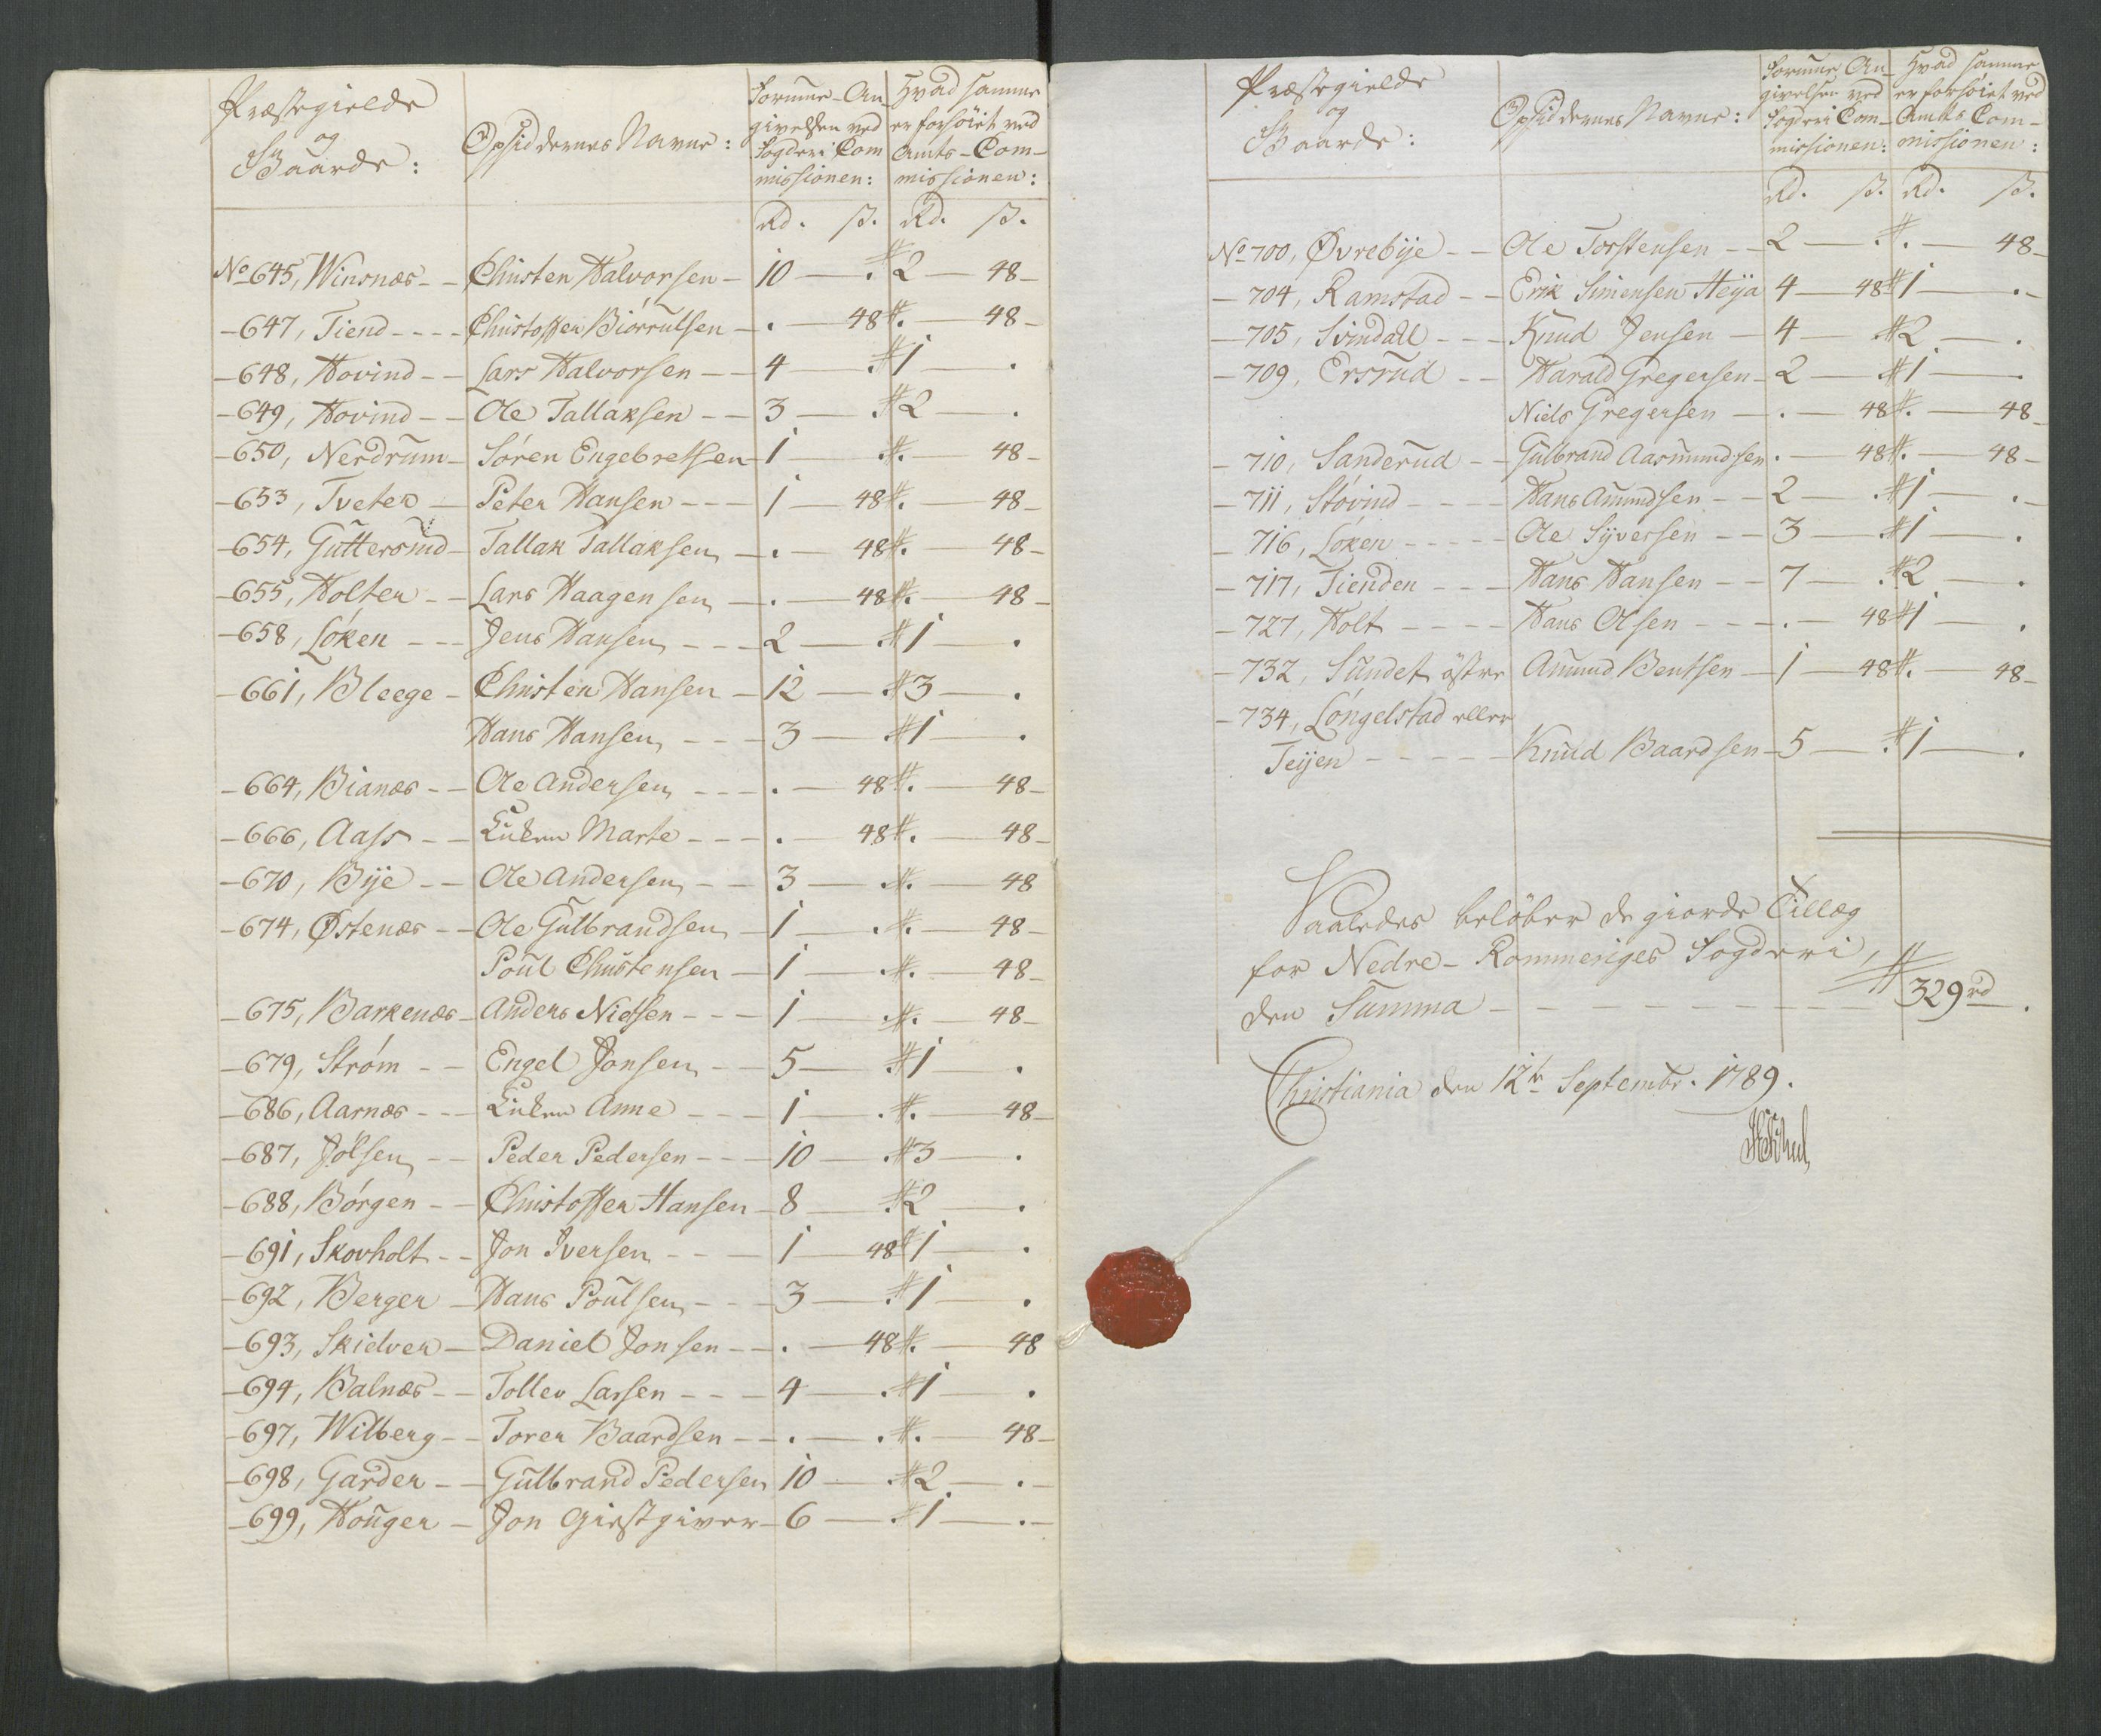 Præstegields
og
Gaarde:
Opsiddernes Navne:
Formue-An
givelsen ved
Fogderi Com
missionen:
Hvad samme
er forhöiet ved
Amts-Com-
missionen:
Rd. ß. Rd. ß.
No 645, Winsnæs -- Christen Halvorsen - 10 — . # 2 — 48 -
- 647, Tiend ---- Christoffer Biørrulsen - . — 48 # . — 48 -
- 648, Hovind -- Lars Halvorsen -- 4 — . # 1 — .
- 649, Hovind -- Ole Tallaksen -- 3 — . # 2 — .
- 650, Nerdrum - Sören Engebretsen - 1 — . # . — 48 -
- 653, Tveter — Peter Hansen --- 1 — 48 # . — 48 -
- 654, Guttersrud - Tallak Tallaksen - . — 48 # . — 48 -
- 655, Holter -- Lars Haagensen - . — 48 # . — 48 -
- 658, Löken --- Jens Hansen --- 2 — . # 1 — .
- 661, Bleege - Christen Hansen - 12 — . # 3 — .
Hans Hansen --- 3 — . # 1 — .
- 664, Bianæs -- Ole Andersen --- . — 48 # . — 48 -
- 666, Aass -- Enken Marte --- . — 48 # . — 48 -
- 670, Bije -- Ole Andersen -- 3 — . # . — 48
- 674, Østenæs -- Ole Gulbrandsen - 1 — . # . — 48 -
Poul Christensen - 1 — . # . — 48 -
- 675, Barkenæs - Anders Nielsen --- 1 — . # . — 48 -
- 679, Ström -- Engel Jonsen -- 5 — . # 1 .
- 686, Aarnæs --- Enken Anne --- 1 — . # . — 48 -
- 687, Jölsen -- Peder Pedersen --- 10 — . # 3 — .
- 688, Börgen -- Christoffer Hansen - 8 — . # 2 — .
- 691, Skovholt -- Jon Iversen --- 1 — 48 # 1 — .
- 692, Berger - Hans Poulsen --- 3 — . # 1 — .
- 693, Skielver - Daniel Jonsen -- . — 48 # . — 48
- 694, Balnæs -- Tollev Larsen --- 4 — . # 1 .
- 697, Wilberg -- Torer Baardsen -- . — . # . — 48 -
- 698, Garder -- Gulbrand Pedersen 10 — . # 2 — . -
- 699, Houger - Jon Giestgiver - 6 — . # 1 — . -
Præstegields
og
Gaarde:
Opsiddernes Navne:
Formue An-
givelsen ved
Fogderi Com-
missionen:
Hvad samme
er forhöiet ved
Amts Com-
missionen:
Rd. ß. Rd. ß.
No 700, Øvrebije -- Ole Torstensen -- 2 — . # . — 48 -
- 704, Ramstad -- Erik Simensen Heija 4 — 48 # 1 — . -
- 705, Svindall --- Knud Jensen - 4 — # 2 — .
- 709, Ersrud -- Harald Gregersen - 2 — . # 1 — .
Niels Gregersen - . — 48 # . — 48 -
- 710, Sanderud -- Gulbrand Aasmundsen . — 48 # . — 48 -
- 711, Stövind ---- Hans Amundsen -- 2 — . # 1 — . -
- 716, Löken ----- Ole Sijversen -- 3 — . # 1 — .
- 717, Tienden --- Hans Hansen -- 7 — . # 2 — .
- 727, Holt ---- Hans Olsen --- . — 48 # 1 — .
- 732, Sundet östre Amund Bentsen - 1 — 48 # . — 48 -
- 734, Löngelstad eller
Teijen ----- Knud Baardsen - 5 — . # 1 — .
Saaledes belöber de giorde Tillæg
for Nedre-Rommeriges Fogderi,
den Summa - - - - - - # 329 rd .
Christiania den 12te Septembr. 1789.